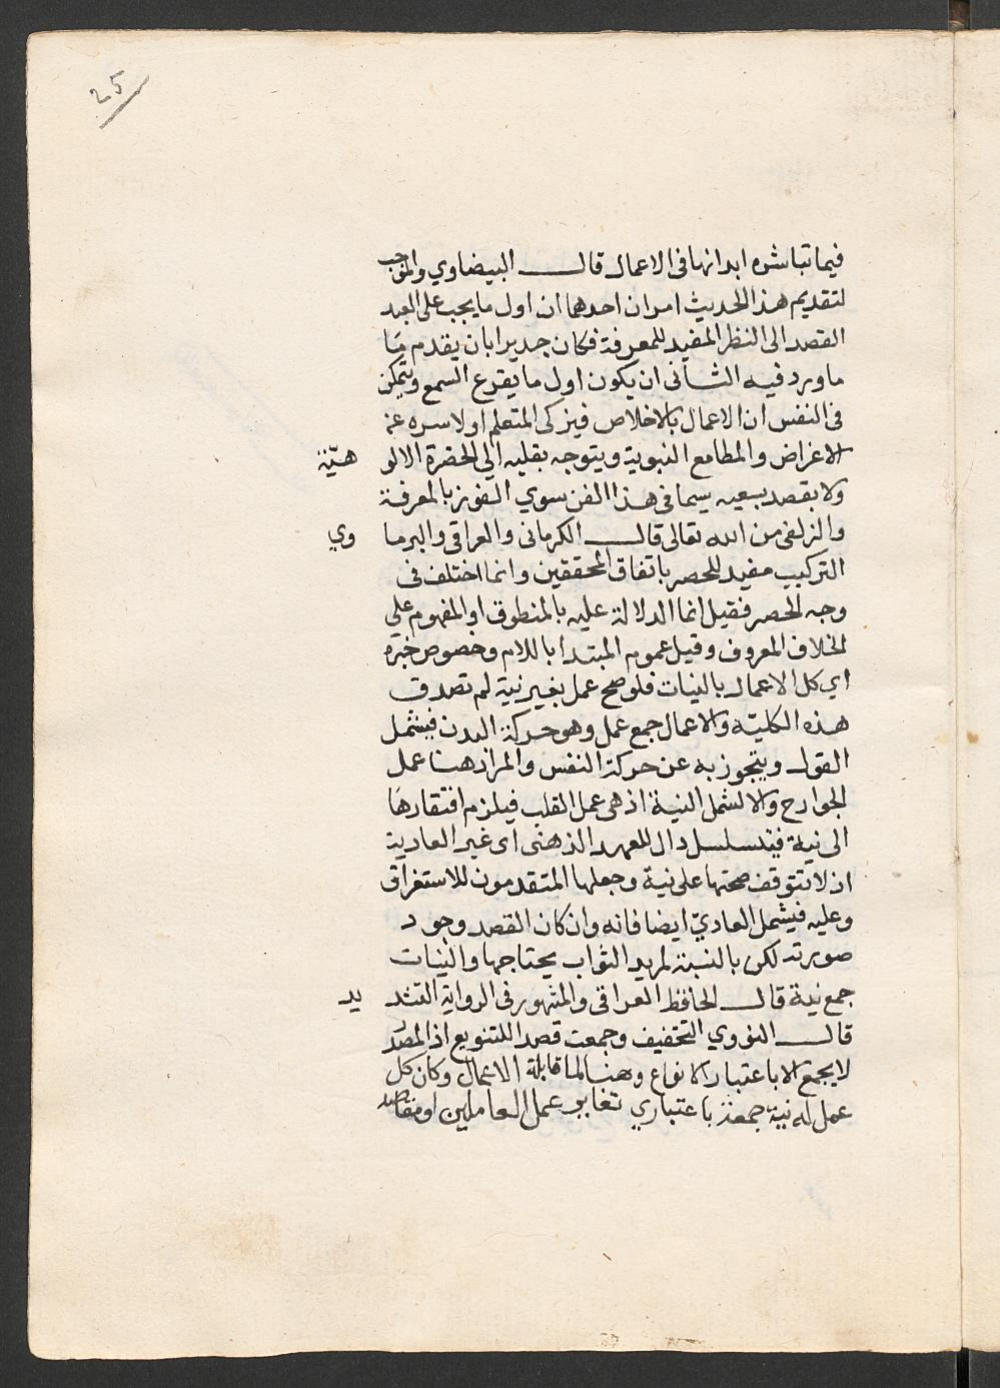 25
فيما تباشره ابدانها فى الاعمال قال البيضاوي والموجب
لتقديم هذا الحديث امران احدهما ان اول ما يجب على العبد
القصد الى النظر المفيد للمعرفة فكان جديرا بان يقدم مَا
ما ورد فيه الثانى ان يكون اول ما يقرع السمع ويتمكن
فى النفس ان الاعمال بالاخلاص فيزكى المتعلم اولا سره عن
الاغراض والمطامع النبوية ويتوجه بقلبه الي الحضرة الالوهيّة
ولا يقصد بسعيه سيما فى هذا الفن سوي الفوز بالمعرفة
والزلفى من الله تعالى قال الكرمانى والعراقى والبرماوي
التركيب مفيد للحصر باتفاق المحققين وانما اختلف فى
وجه الحصر فقيل انما الدلالة عليه بالمنطوق او المفهوم علي
الخلاف المعروف وقيل عموم المبتدا باللام وخصوص خبره
اي كل الاعمال بالنيات فلو صح عمل بغير نية لم تصدق
هذه الكلية والاعمال جمع عمل وهو حركة البدن فيشمل
القول ويتجوز به عن حركة النفس والمراد هنا عمل
الجوارح والا لشمل النية اذ هى عمل القلب فيلزم افتقارهَا
الى نية فيتسلسل وال للعهد الذهنى اى غير العادية
اذ لا تتوقف صحتها على نية وجعلها المتقدمون للاستغراق
وعليه فيشمل العاديّ ايضا فانه وان كان القصد وجود
صورته لكن بالنسبة لمريد الثواب يحتاجها والنيات
جمع نية قال الحافظ العراقى والمشهور فى الرواية التشديد
قال النووي التخفيف وجمعت قصدا للتنويع اذ المصدر
لا يجمع الا باعتبار الانواع وهنا لمقابلة الاعمال وكان كل
عمل له نية جمعت باعتباري تغاير عمل العاملين او مقاصد